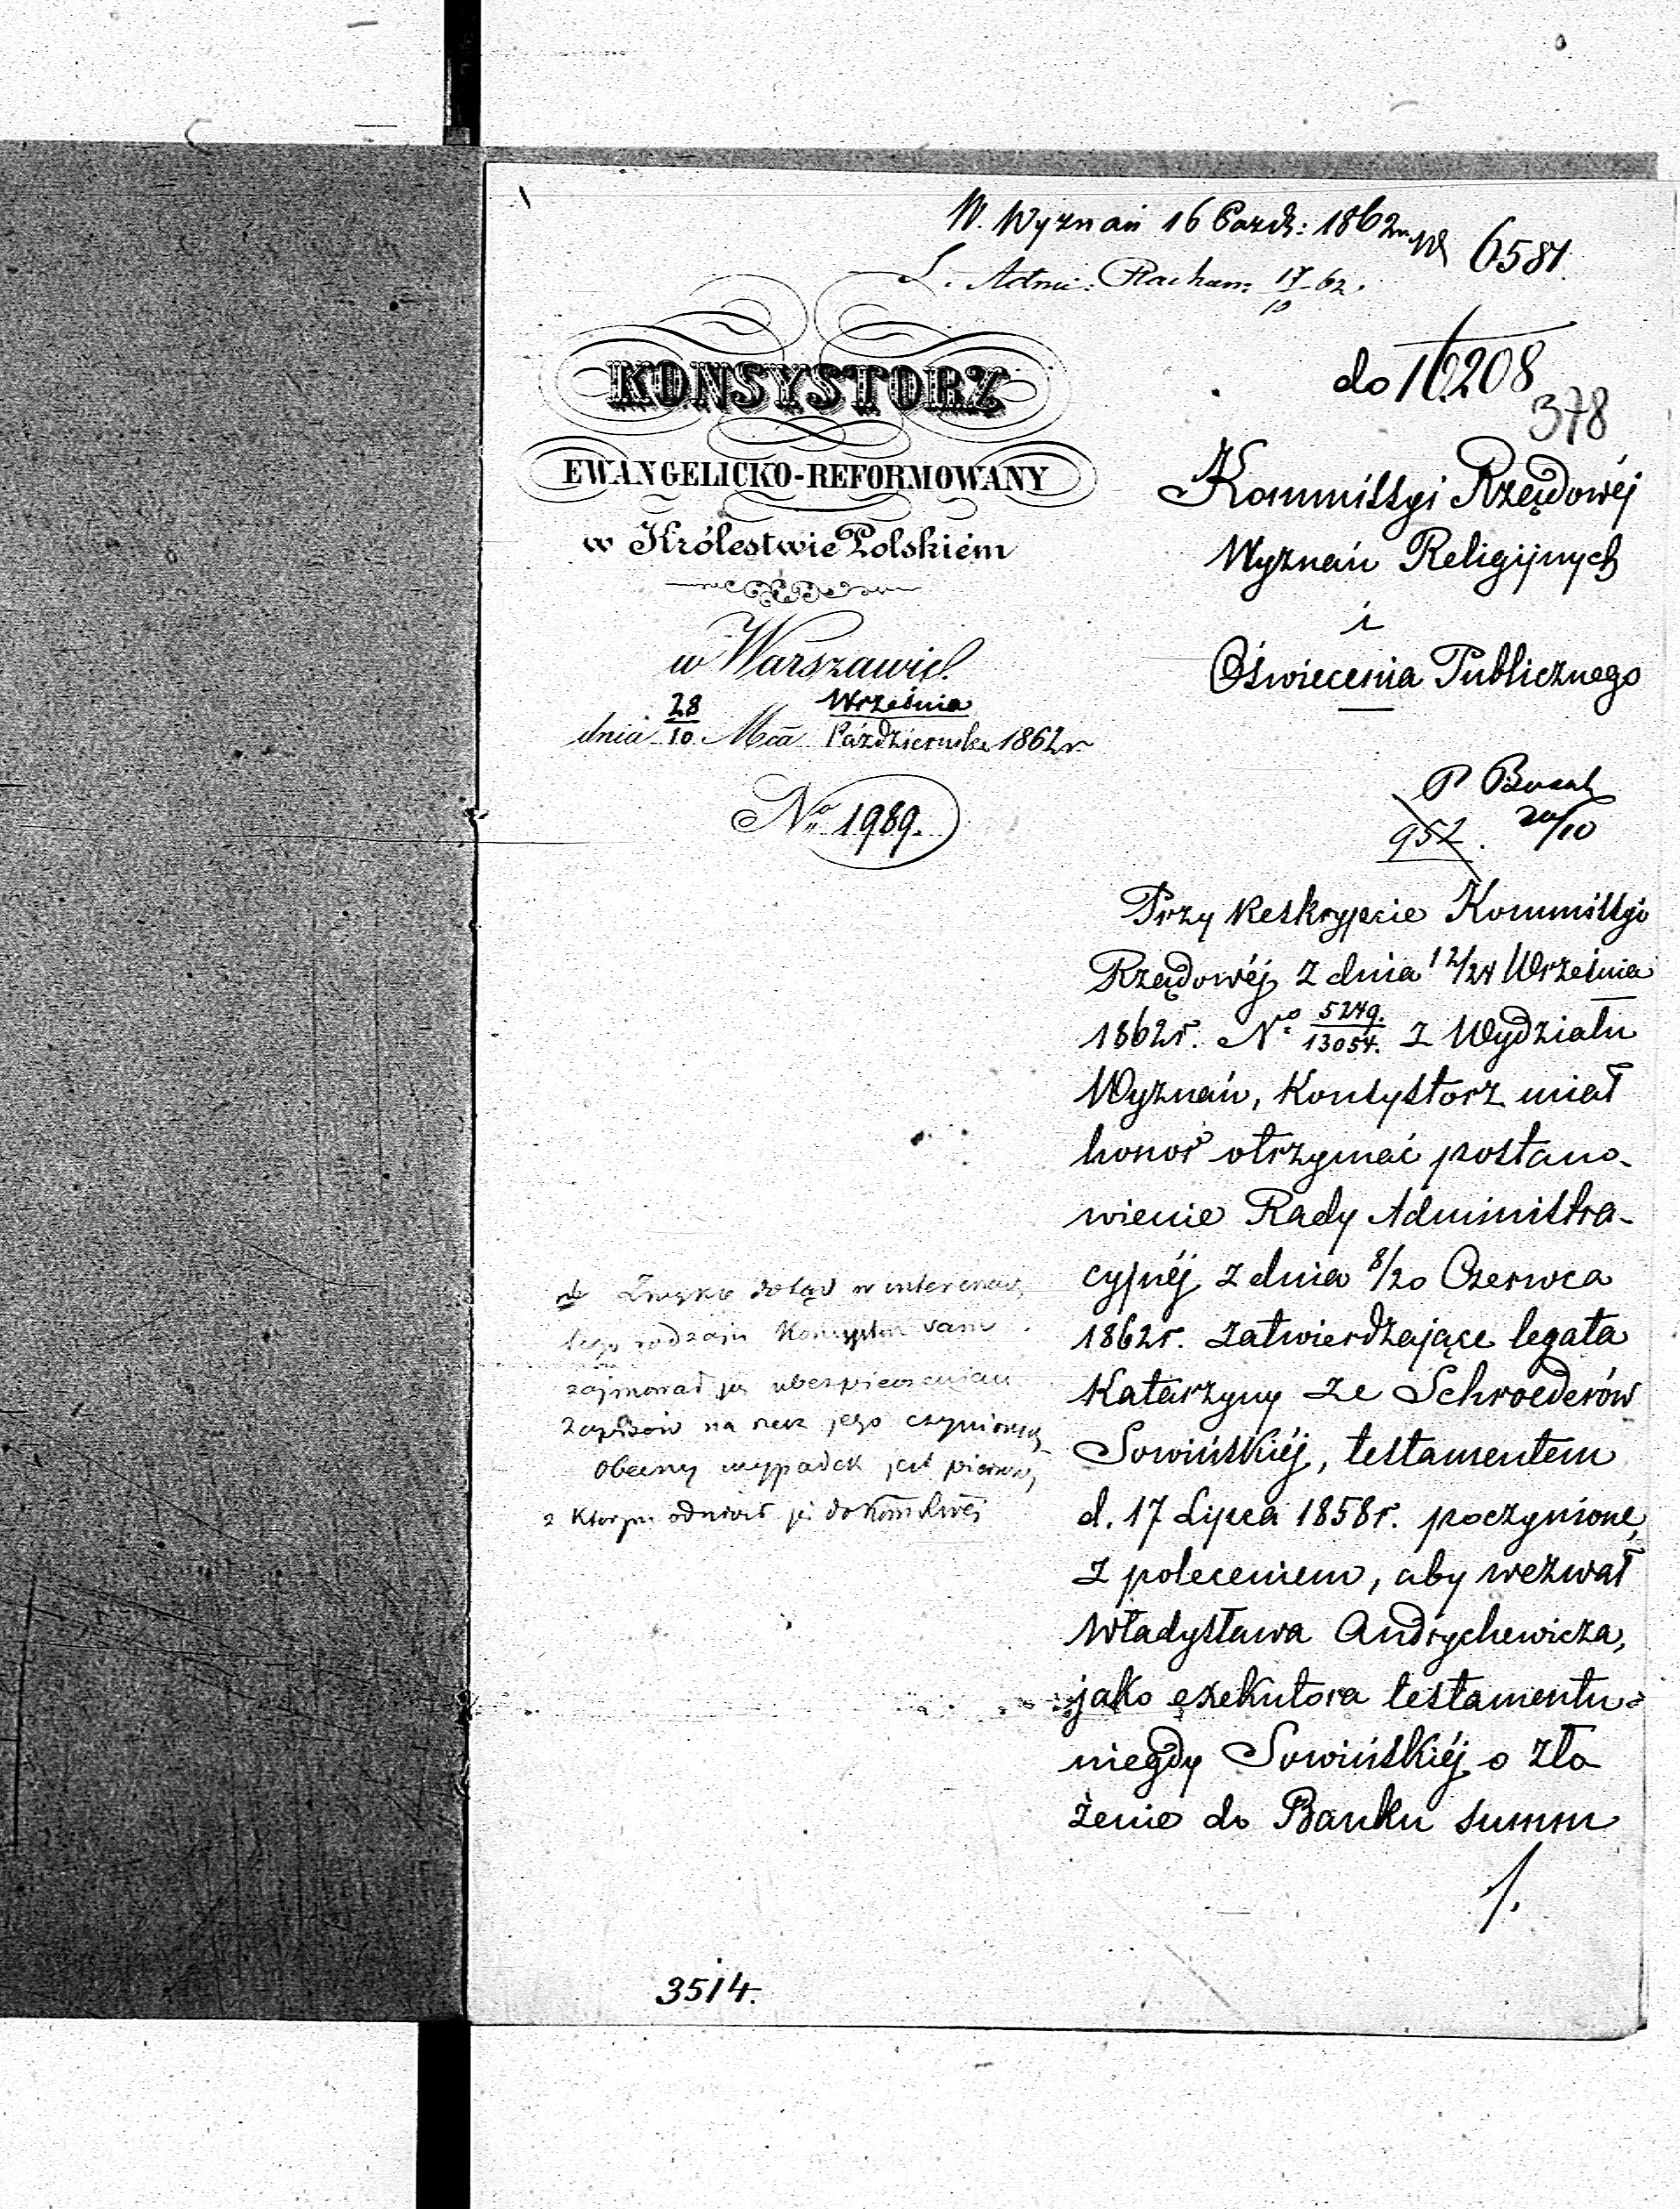 W. Wyznań 16 Paźdz: 1862 r. N 6581.
S. Admi: Rachun: 17/10 62.
do 16208
378
KONSYSTORZ
EWANGELICKO-REFORMOWANY
w Królestwie Polskiém
w Warszawie.
dnia 28/10 Mca Września/Października 1862 r.
No. 1989.
Kommissyi Rządowéj
Wyznań Religijnych
i
Oświecenia Publicznego
P
952. 20/10
Przy Reskrypcie Kommissyi
Rządowéj z dnia 12/24 Września
1862r. No. 5249./13054. z Wydziału
Wyznań, Konsystorz miał
honor otrzymać postano-
wienie Rady Administra-
cyjnéj z dnia 8/20 Czerwca
1862r. zatwierdzające legata
Katarzyny ze Schroederów
Sowińskiéj, testamentem
d. 17 Lipca 1858r. poczynione,
z poleceniem, aby wezwał
Władysława Andrychewicza,
jako exekutora testamentu
niegdy Sowińskiéj o zło
żenie do Banku summ
/.
Zwykle dotąd w interesach
tego rodzaju Konsystorz sam
zajmował się ubezpieczeniem
zapisów na rzecz jego czynionych
Obecny wypadek jest pierwszy
z którym odniósł się do
3514.